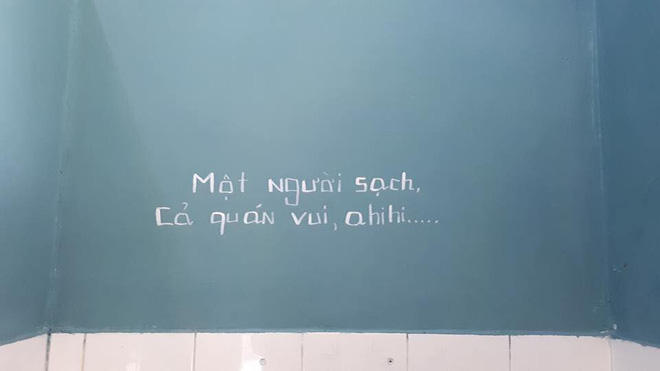 Một người sạch,
Cả quán vui, ahihi.....